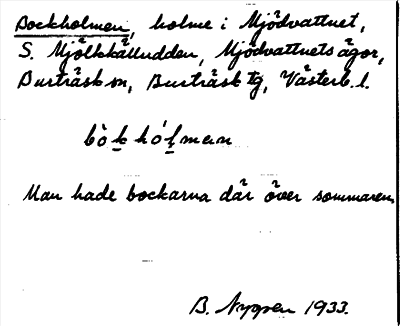 Bockholmen, holme i Mjödvattnet,
S. Mjölkkälludden, Mjödvattnets ägor,
Burträsk sn, Burträsk tg, Västerb. l.
bòk̲hól̥mɐn
Man hade bockarna där över sommaren
B. Nygren 1933.